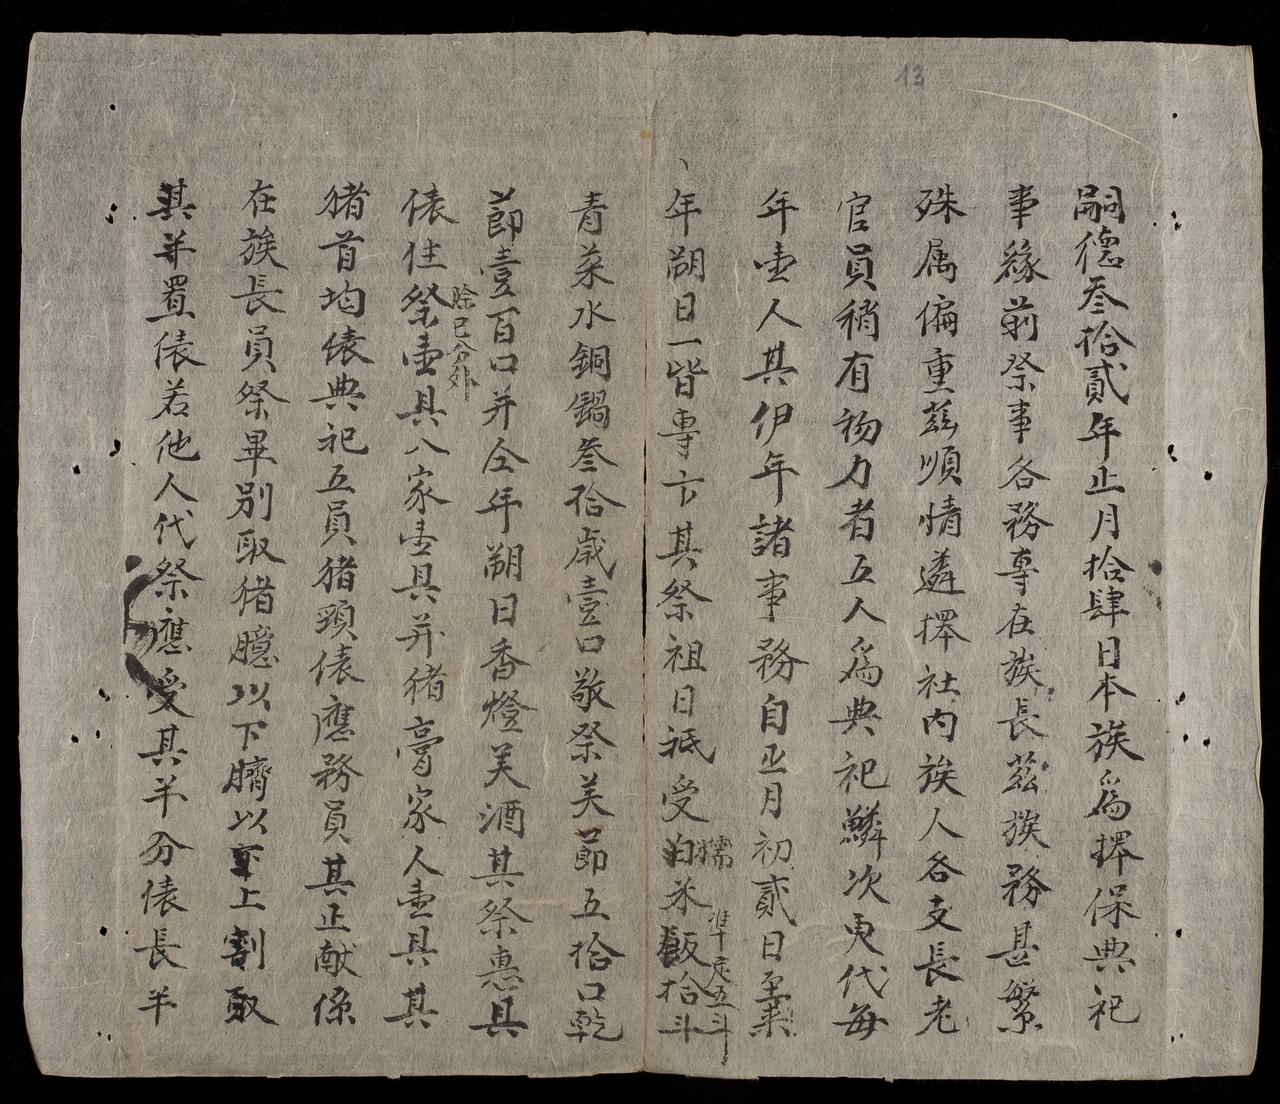 13
嗣德叁拾貳年正月拾肆日本族爲擇保典祀
事緣前祭事各務專在族長茲族務甚繁
殊属偏重茲順情遴擇社内族人各支長老
官員稍有物力者五人爲典祀鱗次更代每
年壹人其伊年諸事務自正月初貳日至来
年朔日一皆專卞其祭祖日祇受白米飯拾斗
糯
准十足五斗
青菜水銅鍋叁拾歲壹口敬祭美莭五拾口乾
莭壹百口并仝年朔日香燈芙酒其祭惠具
俵住祭壹具八家壹具并猪膏家人壹具其
除已分外
猪首均俵典祀五員猪頸俵應務員其正献係
在族長員祭畢别取猪臆以下臍以上割取
其并置俵若他人代祭應受其半分俵長半